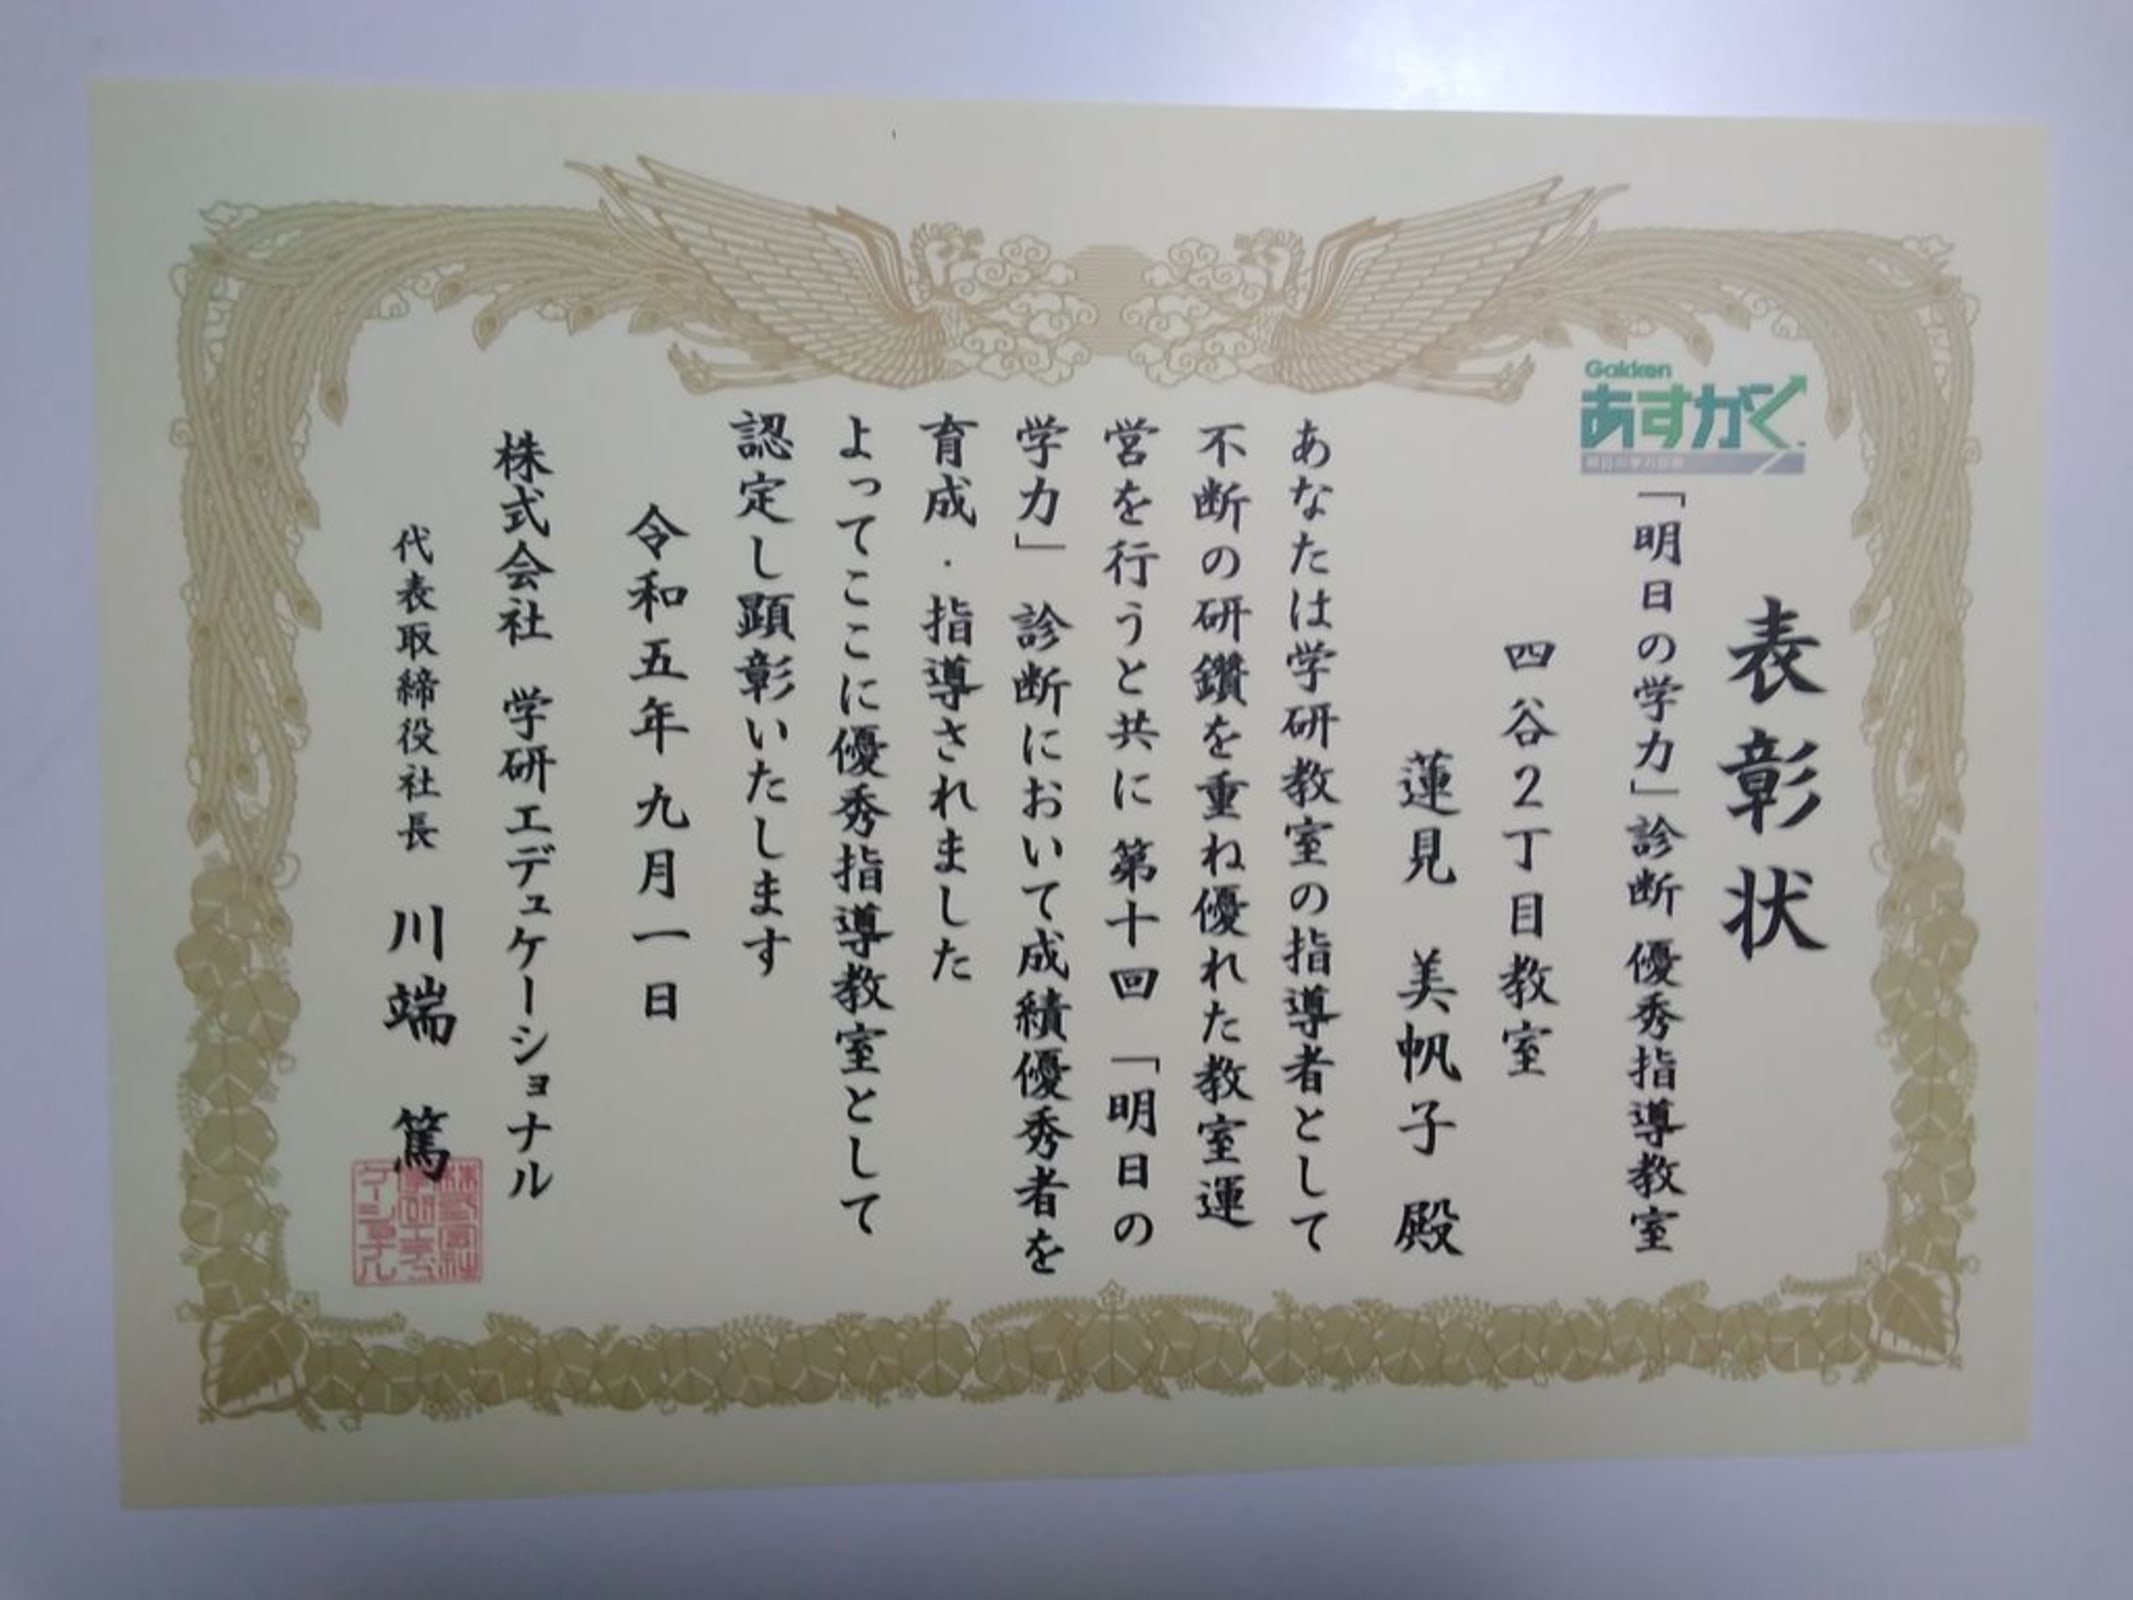 Gakken
あすがく
明日の学力診断
表彰状
「明日の学力」診断 優秀指導教室
四谷2丁目教室
蓮見 美帆子 殿
あなたは学研教室の指導者として
不断の研鑽を重ね優れた教室運
営を行うと共に 第十回 「明日の
学力」 診断において成績優秀者を
育成・指導されました
よってここに優秀指導教室として
認定し顕彰いたします
令和五年九月一日
株式会社 学研エデュケーショナル
代表取締役社長 川端 篤
株式会社
学研エデュ
ケーショナル